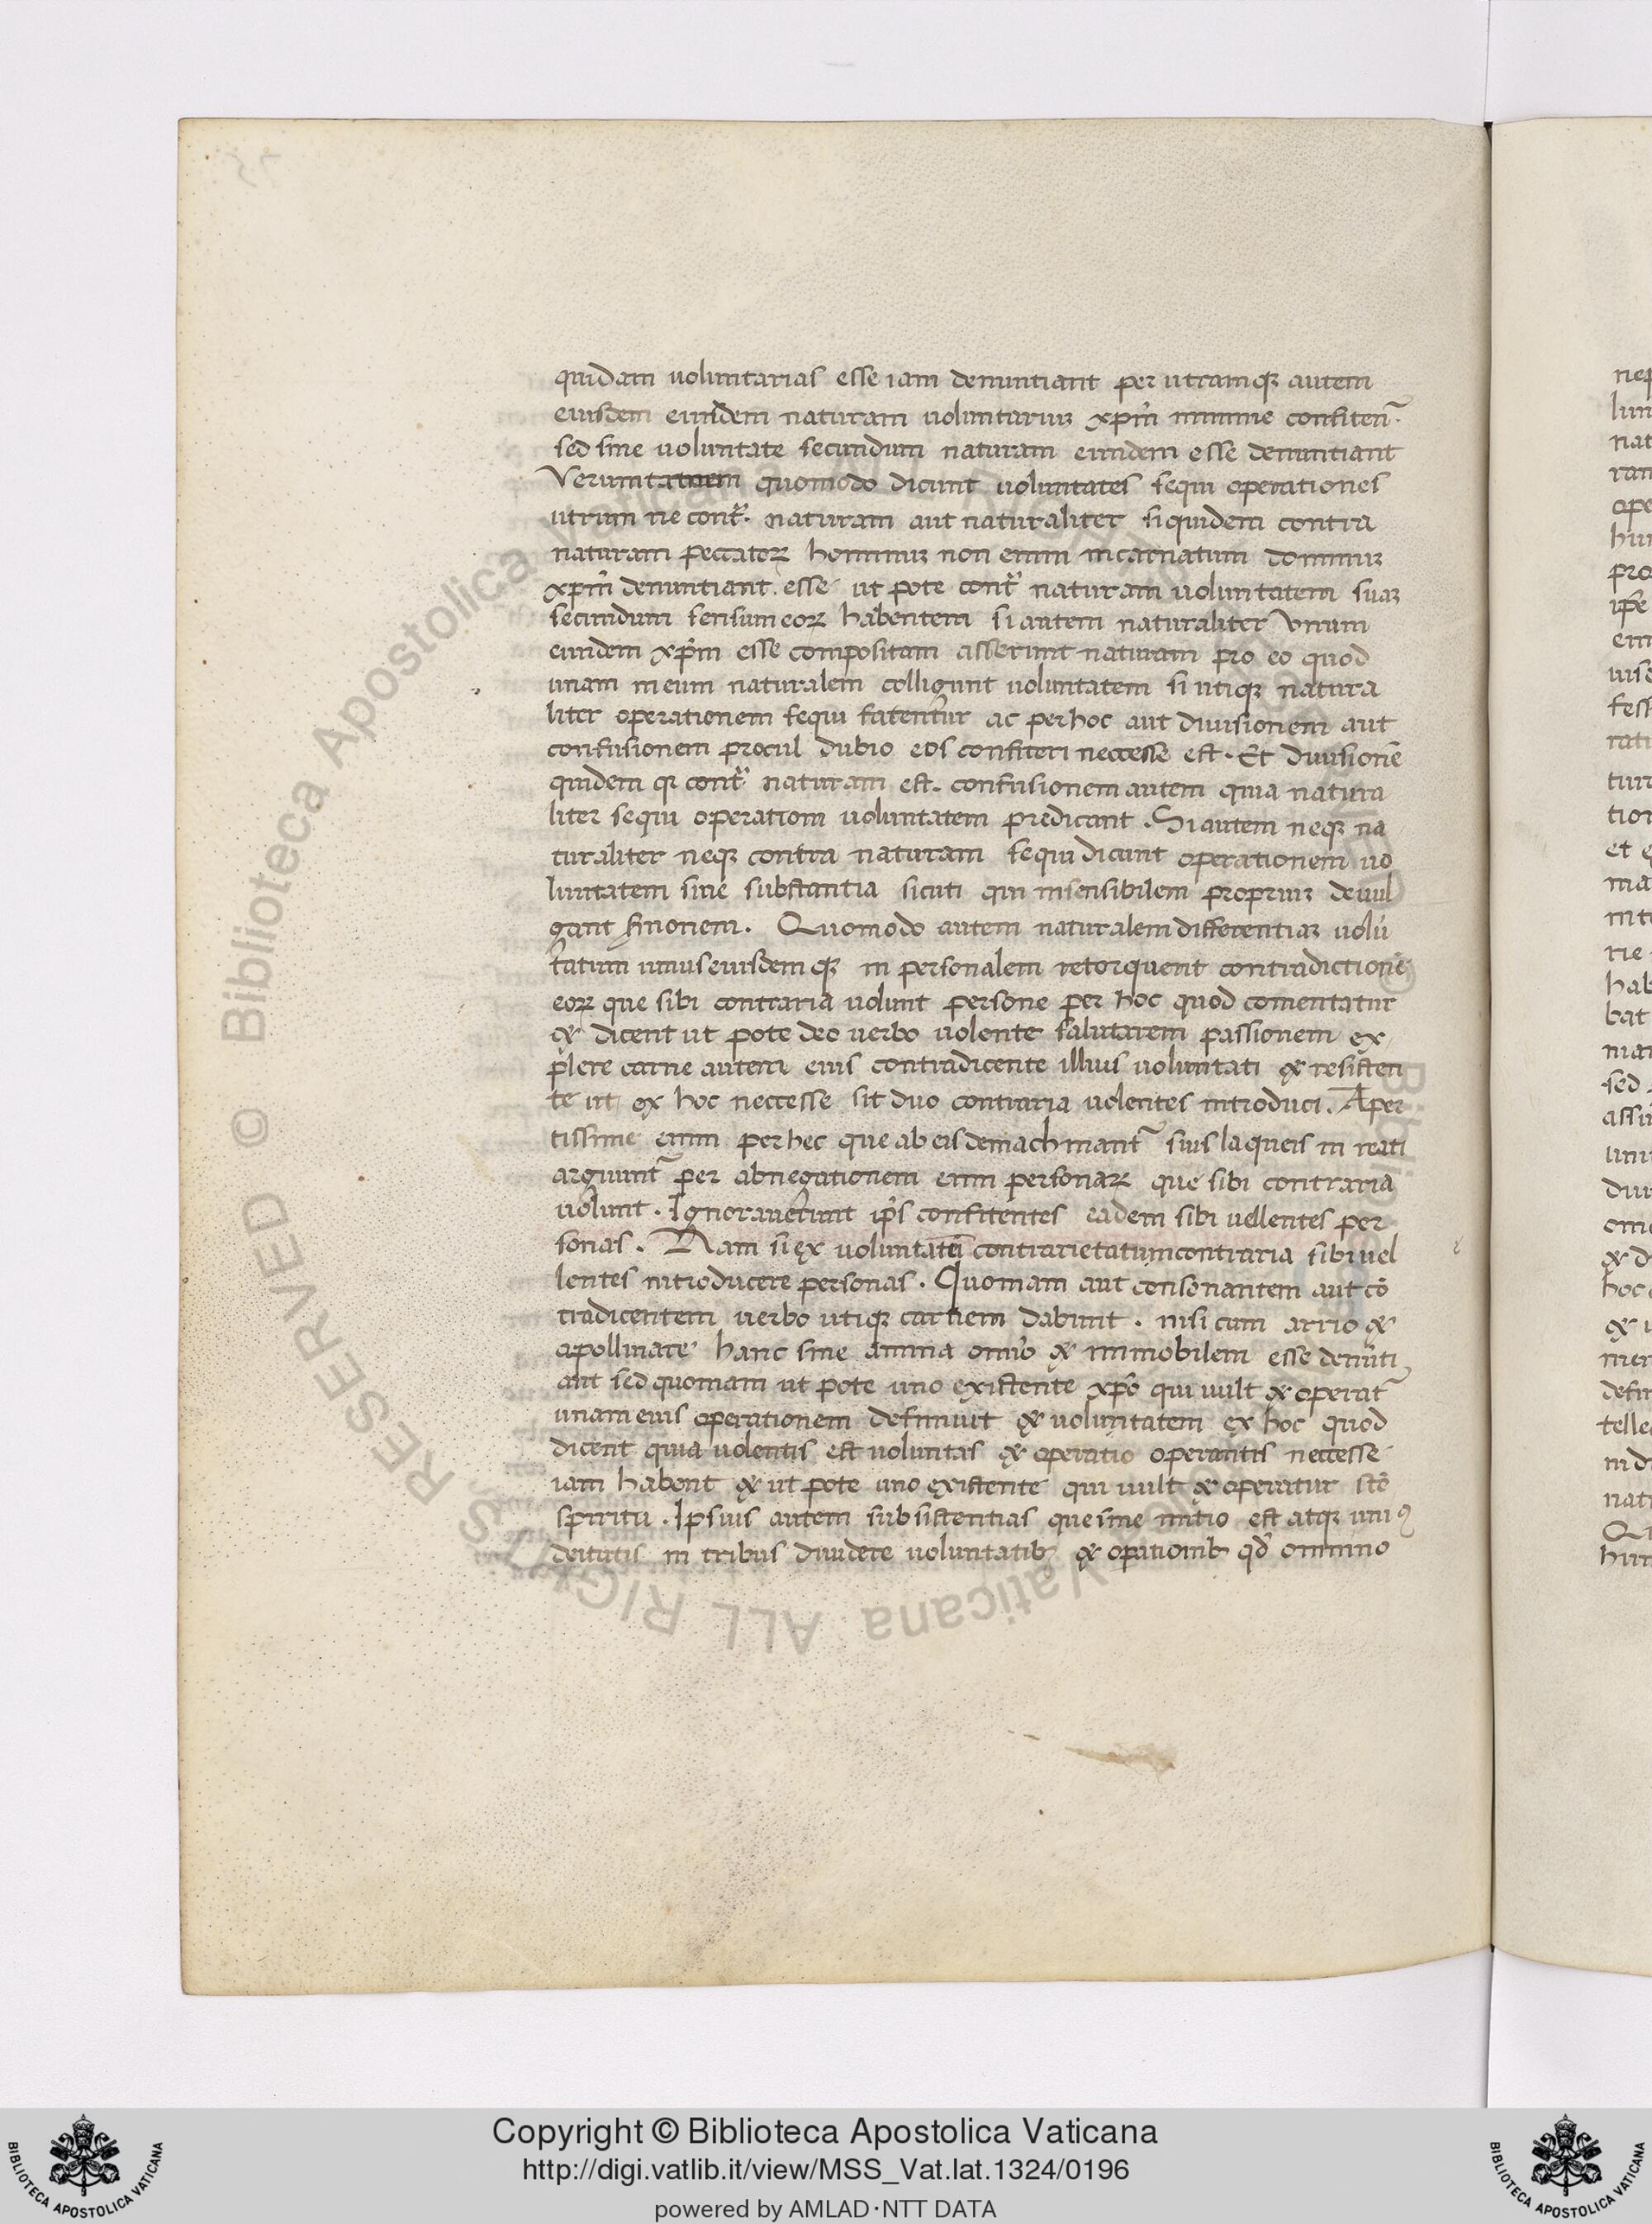 quidam uoluntarias esse iam denuntiant per utramqꝫ autem
eiusdem eiusdem naturam uoluntariuꝫ xpm̄ minime confiten̄.
sed sine uoluntate secundum naturam eundem esse denuntiant
Veruntatnem quomodo dicunt uoluntates sequi operationes
utrum ne contᵃ. naturam aut naturaliter siquidem contra
naturam peccatoꝝ hominuꝫ non enim incarnatum dominuꝫ
xpm̄ denuntiant esse ut pote contᵃ naturam uoluntatem suaꝫ
secundum sensum eoꝝ habentem si autem naturaliter vnum
eundem xpm̄ esse compositam asserunt naturam pro eo quod
unam in eum naturalem colligunt uoluntatem si utiqꝫ natura
liter operationem sequi fatentur ac per hoc aut diuisionem aut
confusionem procul dubio eos confiteri neccesse est. Et diuisionē
quidem qꝛ contᵃ naturam est. confusionem autem quia natura
liter sequi operationi uoluntatem predicant. Si autem neqꝫ na
turaliter neqꝫ contra naturam sequi dicunt operationem uo
luntatem sine substantia sicuti qui insensibilem propriuꝫ deuul
gant s̄monem. Quomodo autem naturalem differentiaꝫ uolū
tatum unus eiusdemqꝫ in personalem retorquent contradictionē
eoꝝ que sibi contraria uolunt persone per hoc quod comentatur
& dicent ut pote deo uerbo uolente salutarem passionem ex
plere carne autem eius contradicente illius uoluntati & resisten
te ut ex hoc neccesse sit duo contraria uolentes introduci. Aper
tissime enim per hec que ab eis demachinant᷑ suis laqueis in reati
arguunt᷑ per abnegationem enim personaꝝ que sibi contraria
uolunt. Ignorauerunt ip̄s confitentes eadem sibi uellentes per
sonas. Nam si ex uoluntatū contrarietatum contraria sibi uel
lentes introducere personas. Quoniam aut consonantem aut cō
tradicentem uerbo utiqꝫ carnem dabunt. nisi cum arrio &
apollinare hanc sine anima omīo & immobilem esse denūti
ant sed quoniam ut pote uno existente xpō qui uult & operat᷑
unam eius operationem definiuit & uoluntatem ex hoc quod
dicent quia uolentis est uoluntas & operatio operantis neccesse
iam habent & ut pote uno existente qui uult & operatur scō
spiritu. Ipsius autem subsistentias que sine initio est atqꝫ uniꝰ
deitatis in tribus diuidere uoluntatibꝫ & opationibꝫ qd̄ omnino
Copyright © Biblioteca Apostolica Vaticana
http://digi.vatlib.it/view/MSS_Vat.lat.1324/0196
powered by AMLAD·NTT DATA